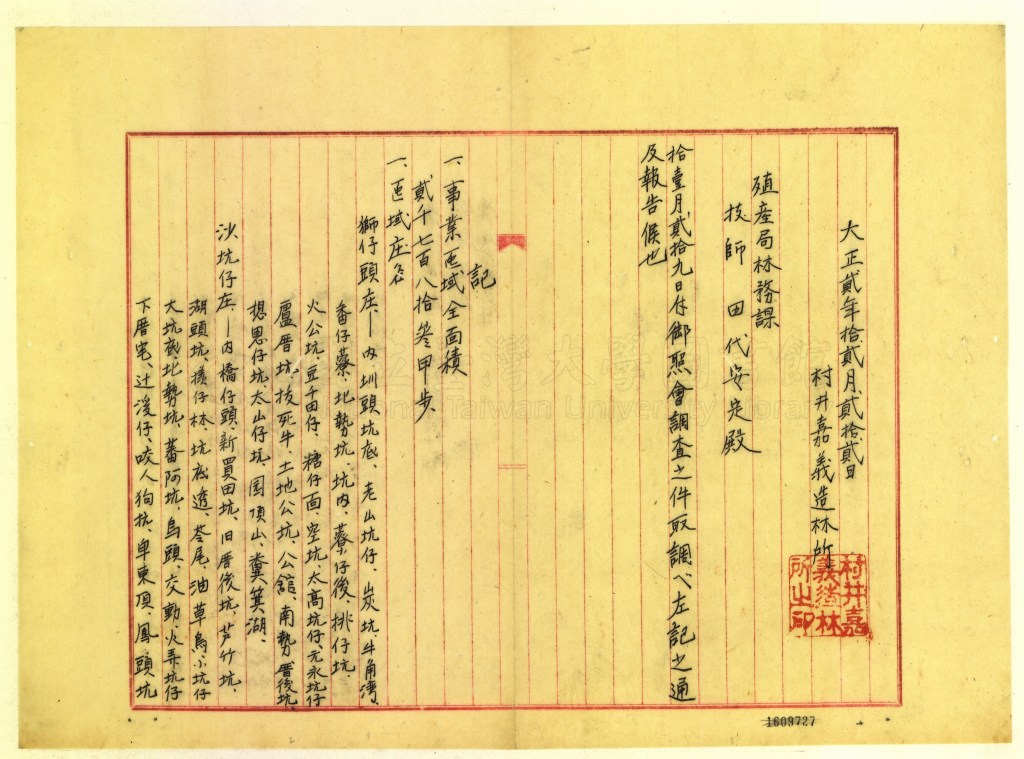 大正貳年拾貳月貳拾貳日
村井嘉義造林所
村井嘉義造林所之印
殖產局林務課
技師 田代安定殿
拾壹月貳拾九日付御照會調查之件取調ヘ左記之通
及報告候也
記
一、事業區域全面積
貳千七百八拾參甲步、
一、區域庄名
獅仔頭庄、一內圳頭坑底、老山坑仔、炭坑、牛角灣、
番仔藔、北勢坑、坑內、藔仔後、排仔坑
火公坑、豆千田仔、糖仔面、空坑、大高坑仔、元永坑仔
廬厝坑、拔死牛、土地公坑、公舘、南勢、厝後坑、
想思仔坑、太山仔坑、圳頂山、糞箕湖、
沙坑仔庄、一內橋仔頭新買田坑、旧厝後坑、芦竹坑、
湖頭坑、檨仔林、坑底透、崙尾、油草烏小坑仔
大坑底、北勢坑、蕃阿坑、烏頭、交動、火弄坑仔
下厝宅、过溪仔、咬人狗坑、卓東頂、鳳頭坑
國立臺灣大學圖書館
National Taiwan University Library
1609727